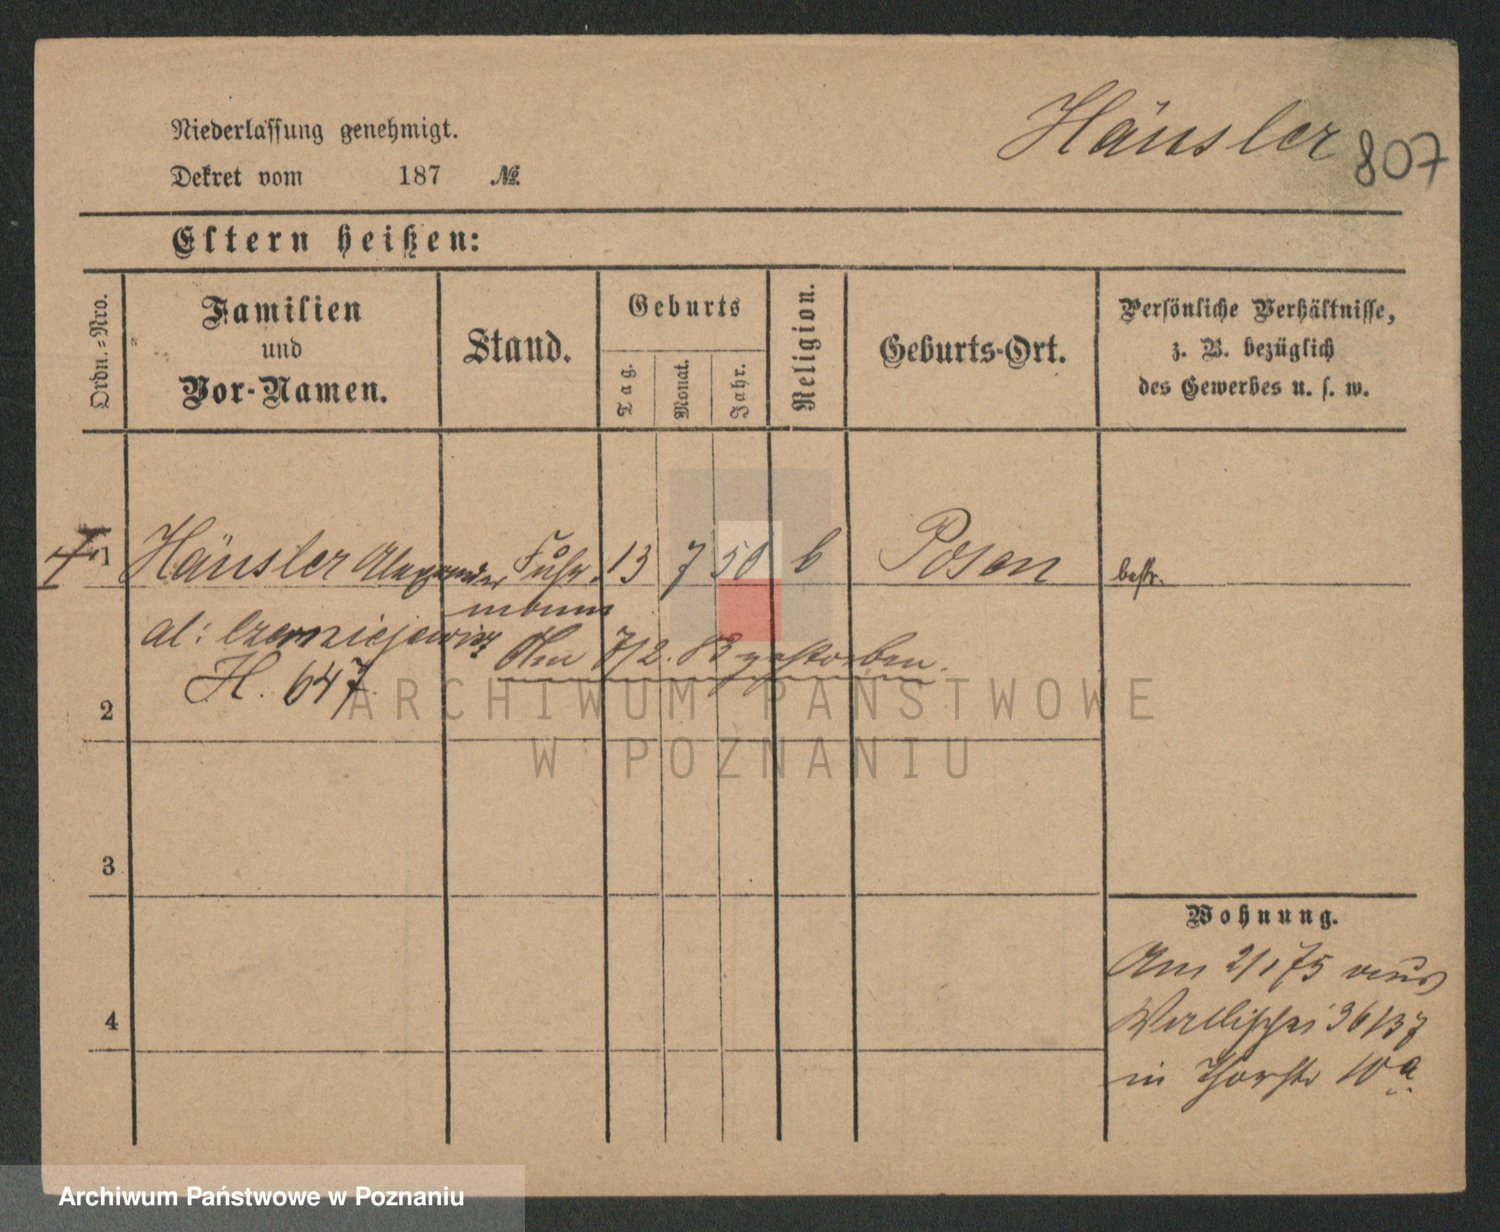 Häusler 807
Niederlassung genehmigt.
Dekret vom 187 №
Eltern heißen:
Ordn.=Nro.
Familien
und
Vor-Namen.
Stand.
Geburts
Tag.
Monat.
Jahr.
Religion.
Geburts-Ort.
Persönliche Verhältnisse,
z. B. bezüglich
des Gewerbes u. s. w.
1 Häusler Alexander Fuhr- 13 7 50 Posen bestr.
mann
al: Czerniejewicz
Am 7/2. 83 gestorben.
H. 647
2
ARCHIWUM PAŃSTWOWE
W POZNANIU
3
Wohnung.
Am 2/1 75 von
Wallischei 36/37
in Thorstr 10a.
4
Archiwum Państwowe w Poznaniu